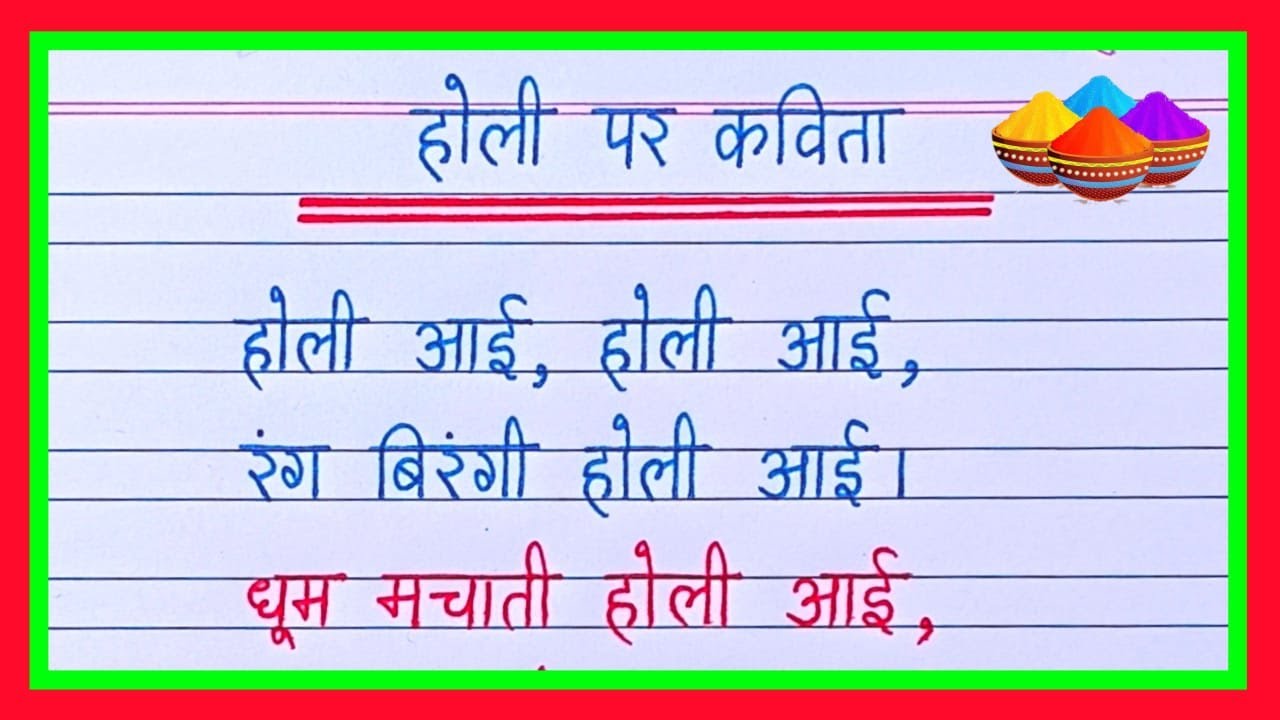 होली पर कविता
होली आई, होली आई,
रंग बिरंगी होली आई।
धूम मचाती होली आई,